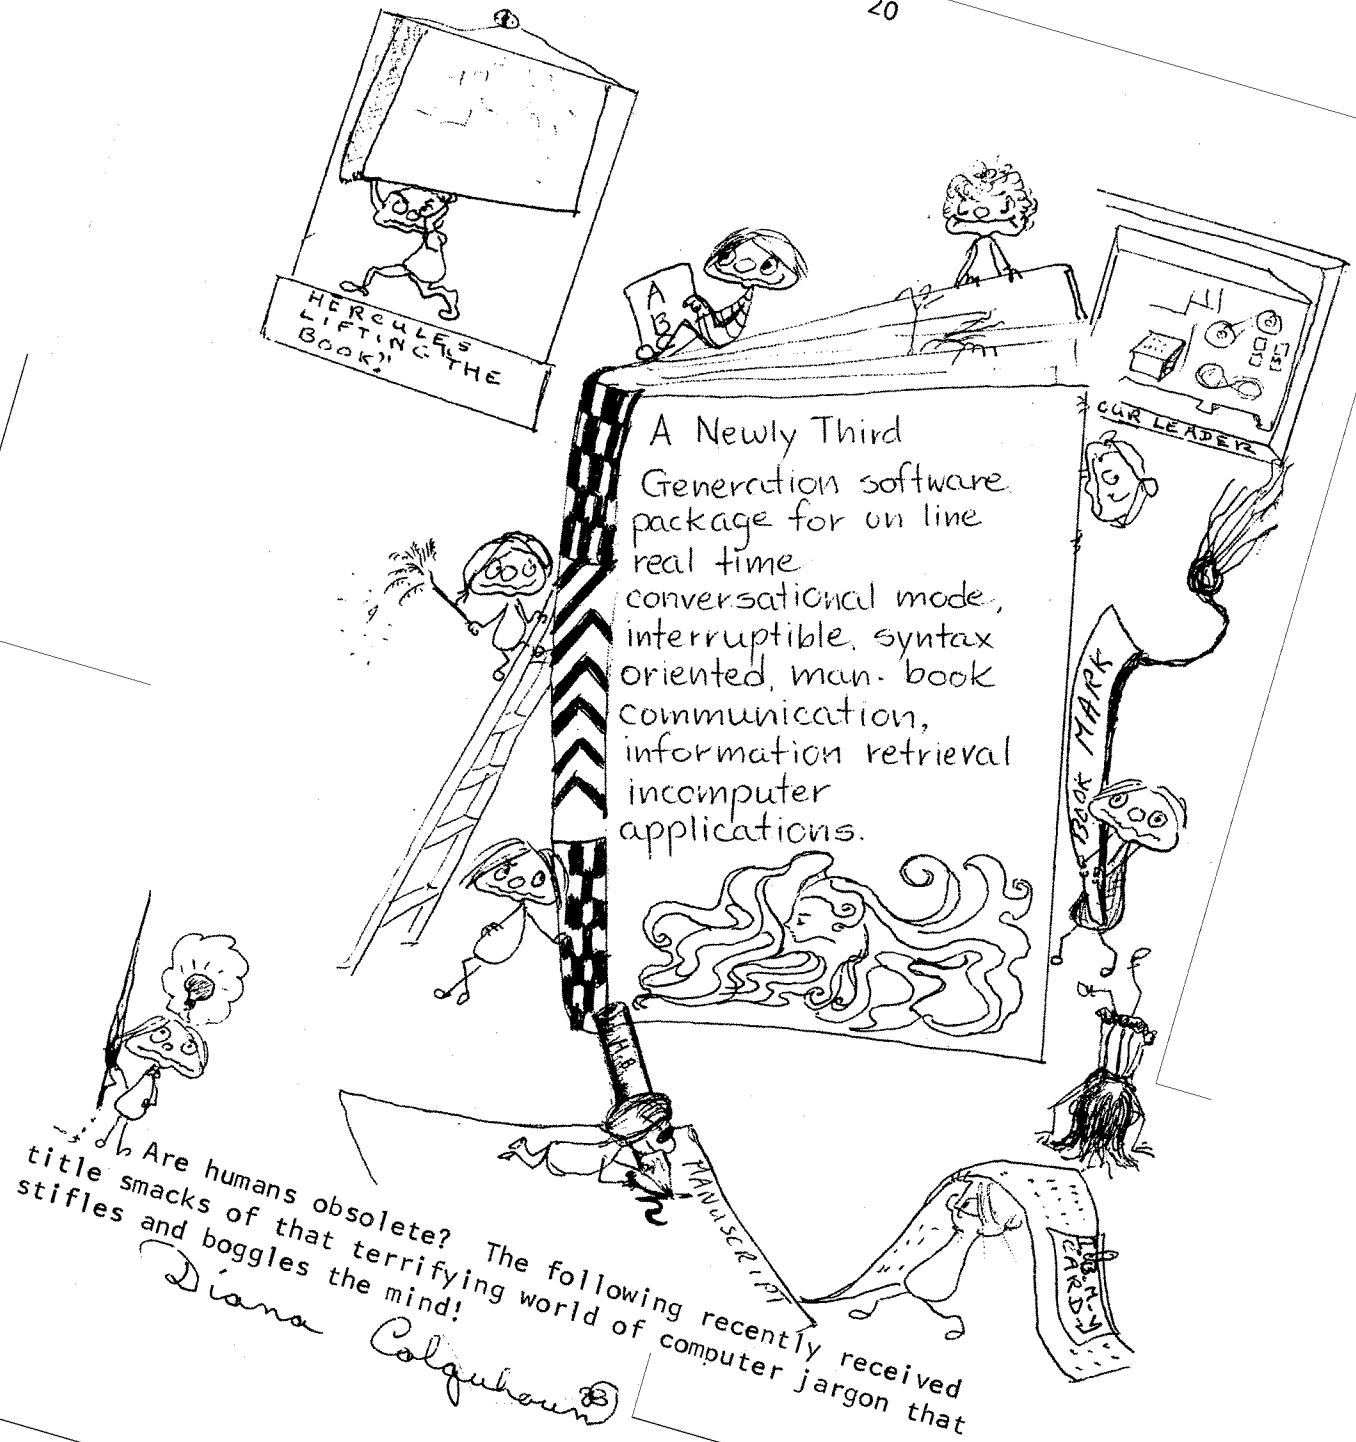 20
HERCULES
LIFTING THE
BOOK!!
A
B
C
OUR LEADER
A Newly Third
Generation software
package for on line
real time
conversational mode,
interruptible, syntax
oriented, man- book
communication,
information retrieval
incomputer
applications.
BOOK MARK
H.B.
MANUSCRIPT
I.B.M.
CARD
Are humans obsolete? The following recently received
title smacks of that terrifying world of computer jargon that
stifles and boggles the mind!
Diana Colquhoun